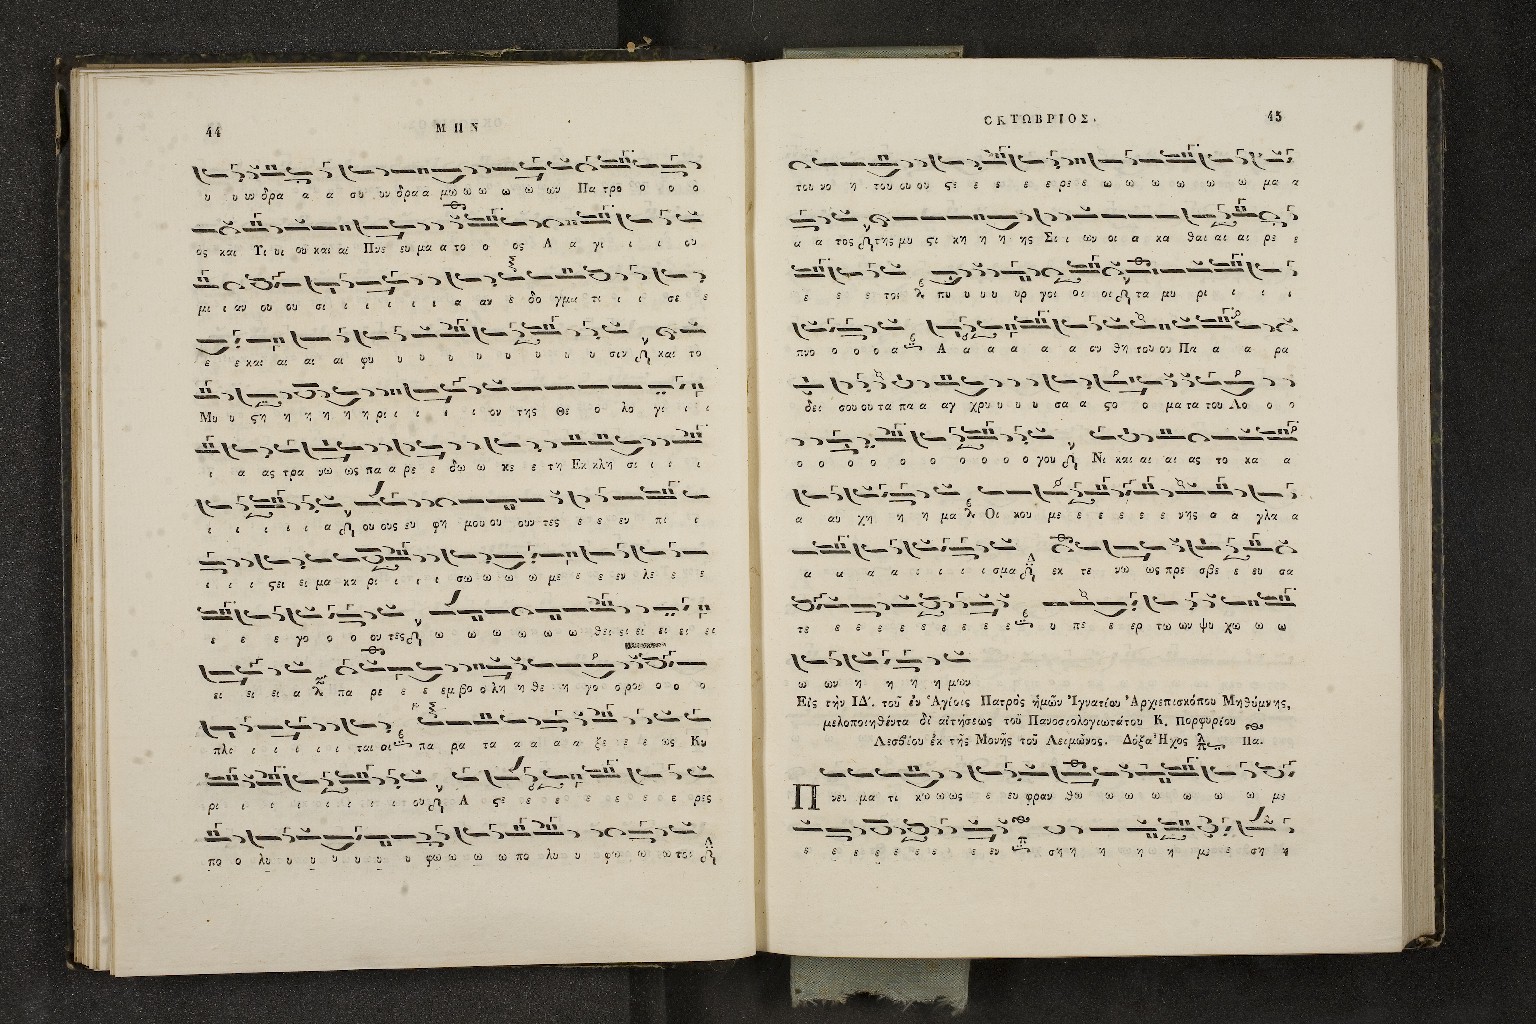 44
ΜΗΝ
υ υ υν δρα α α συ υν δρα α μω ω ω ω ω ων Πα τρο ο ο ο
ος και Υι υι ου και αι Πνε ευ μα α το ο ος Α α γι ι ι ου
μι ι αν ου ου σι ι ι ι ι ι α αν ε δο γμα τι ι ι σε ε
ε ε και αι αι αι φυ υ υ υ υ υ υ υ υ σιν και το
Μυ υ ςη η η η η η ρι ι ι ι ι ον της Θε ο λο γι ι ι
ι α ας τρα νω ως πα α ρε ε δω ω κε ε τη Εκ κλη σι ι ι ι
ι ι ι ι ι α ου ους ευ φη μου ου ουν τες ε ε εν πι ι
ι ι ι ςει ει μα κα ρι ι ι ι σω ω ω ω με ε ε εν λε ε ε
ε ε ε γο ο ο ου τες ω ω ω ω ω ω θει ει ει ει ει ει
ει ει ει α πα ρε ε ε εμ βο ο λη η θε η γο ο ροι ο ο ο
πλε ι ι ι ι ι ται οι πα ρα τα α α α α ξε ε ε ως Κυ
ρι ι ι ι ι ι ι ι ου Α ςε ε ε ε ε ε ε ε ρες
πο ο λυ υ υ υ υ υ υ φω ω ω ω πο λυ υ φω ω ω τοι
ΟΚΤΩΒΡΙΟΣ.
45
του νο η του ου ου ςε ε ε ε ε ρε ε ω ω ω ω ω ω μα α
α α τος της μυ ςι κη η η ης Σι ι ων οι α κα θαι αι αι ρε ε
ε ε ε τοι πυ υ υ υ υρ γοι οι οι τα μυ ρι ι ι ι
πνο ο ο ο α Α α α α α α συ θη του ου Πα α α ρα
δει σου ου τα πα α αγ χρυ υ υ υ σα α ςο ο μα τα του Λο ο ο
ο ο ο ο ο ο ο ο ο ο γου Νι και αι αι ας το κα α
α αυ χη η η μα Οι κου με ε ε ε ε ε νης α α γλα α
α α α α ι ι ι ισμα εκ τε νω ως πρε σβε ε ευ σα
τε ε ε ε ε ε ε ε ε υ πε ε ερ τω ων ψυ χω ω ω
ω ων η η η η μων
Εἰς τὴν ΙΔ΄. τοῦ ἐν Ἁγίοις Πατρὸς ἡμῶν Ἰγνατίου Ἀρχιεπισκόπου Μηθύμνης,
μελοποιηθέντα δι' αἰτήσεως τοῦ Πανοσιολογιωτάτου Κ. Πορφυρίου
Λεσβίου ἐκ τῆς Μονῆς τοῦ Λειμῶνος. Δόξα Ἦχος Πα.
Π νευ μα τι κω ω ως ε ευ φραν θω ω ω ω ω ω ω με
ε ε ε ε ε ε ε εν ση η η η η με ε ση η